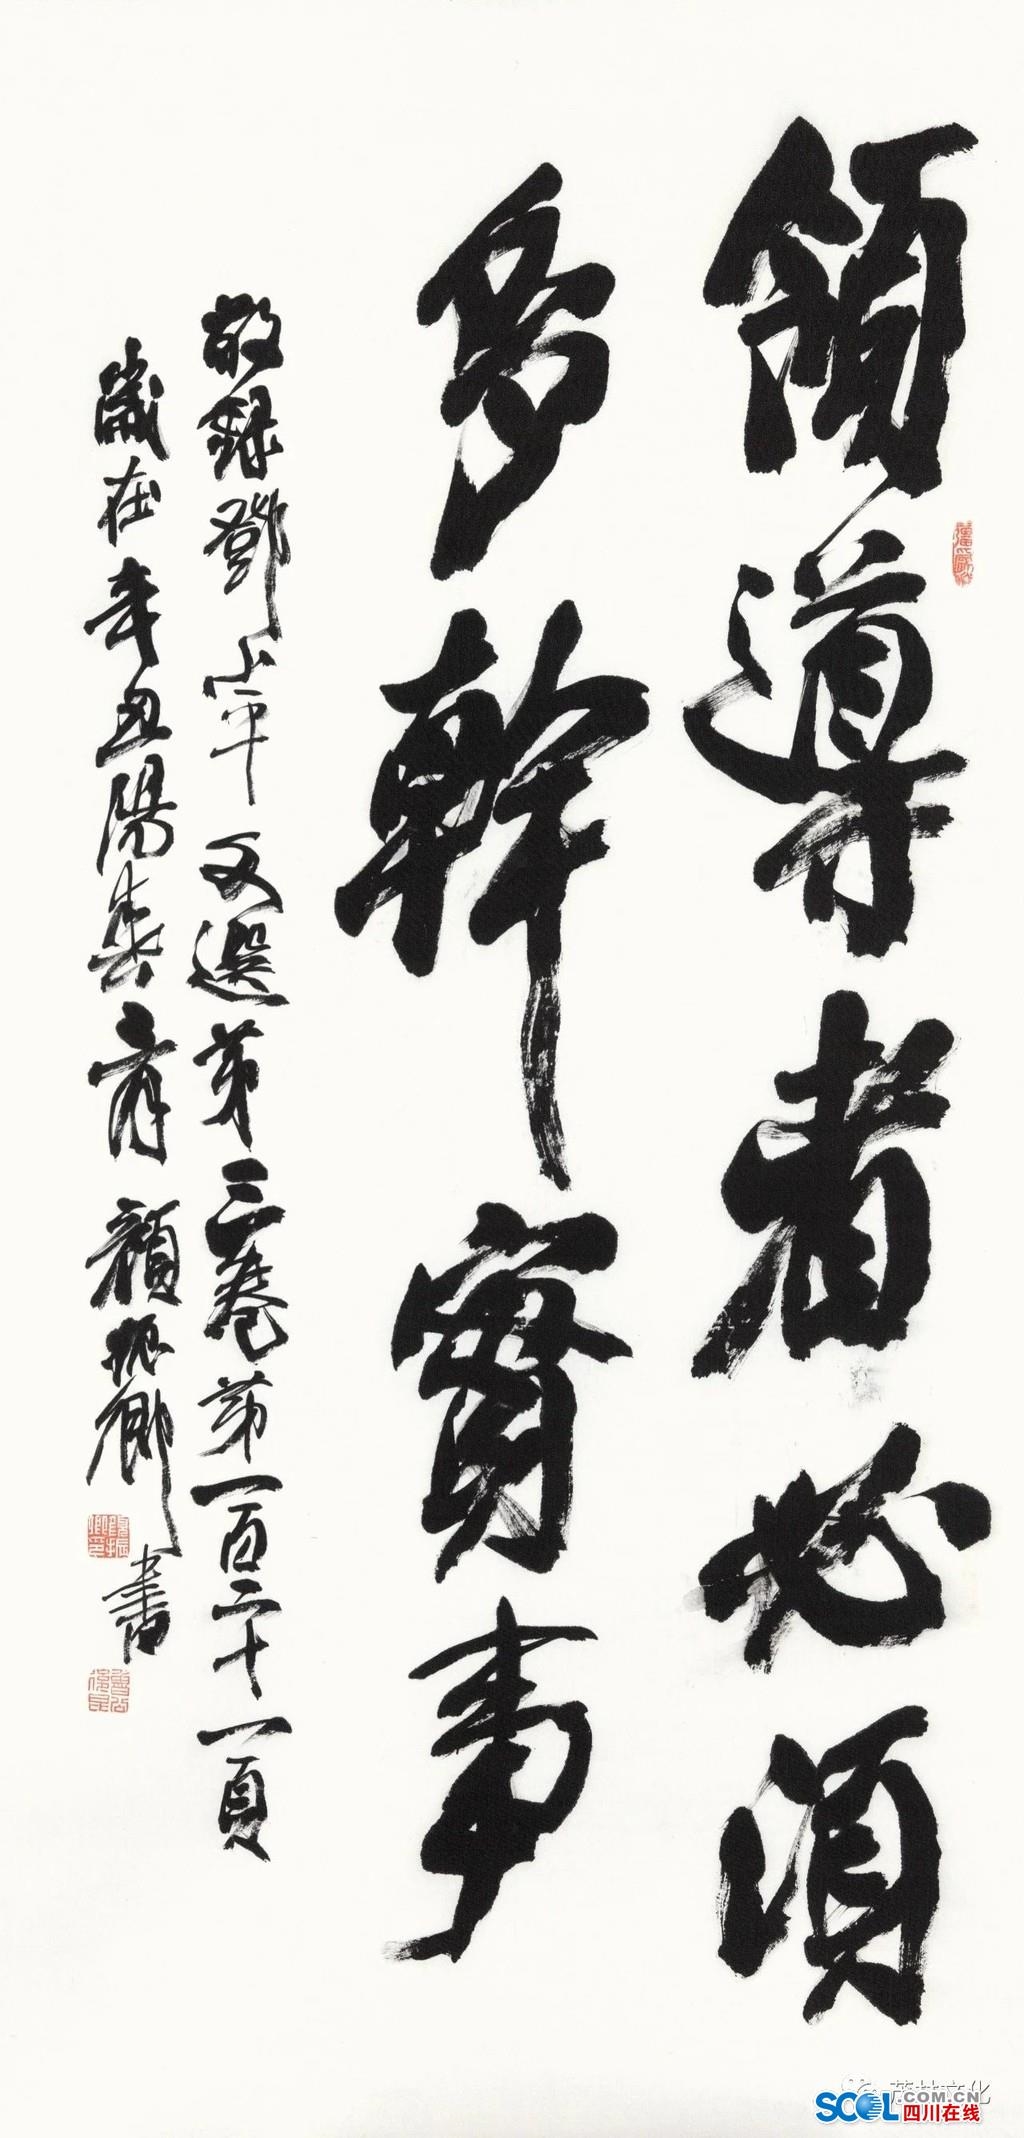 領導者必須
多幹實事
敬録鄧小平文選第三卷第一百二十一頁
歲在辛丑陽春月顔振卿書
茂林文化
SCOL.COM.CN
四川在线